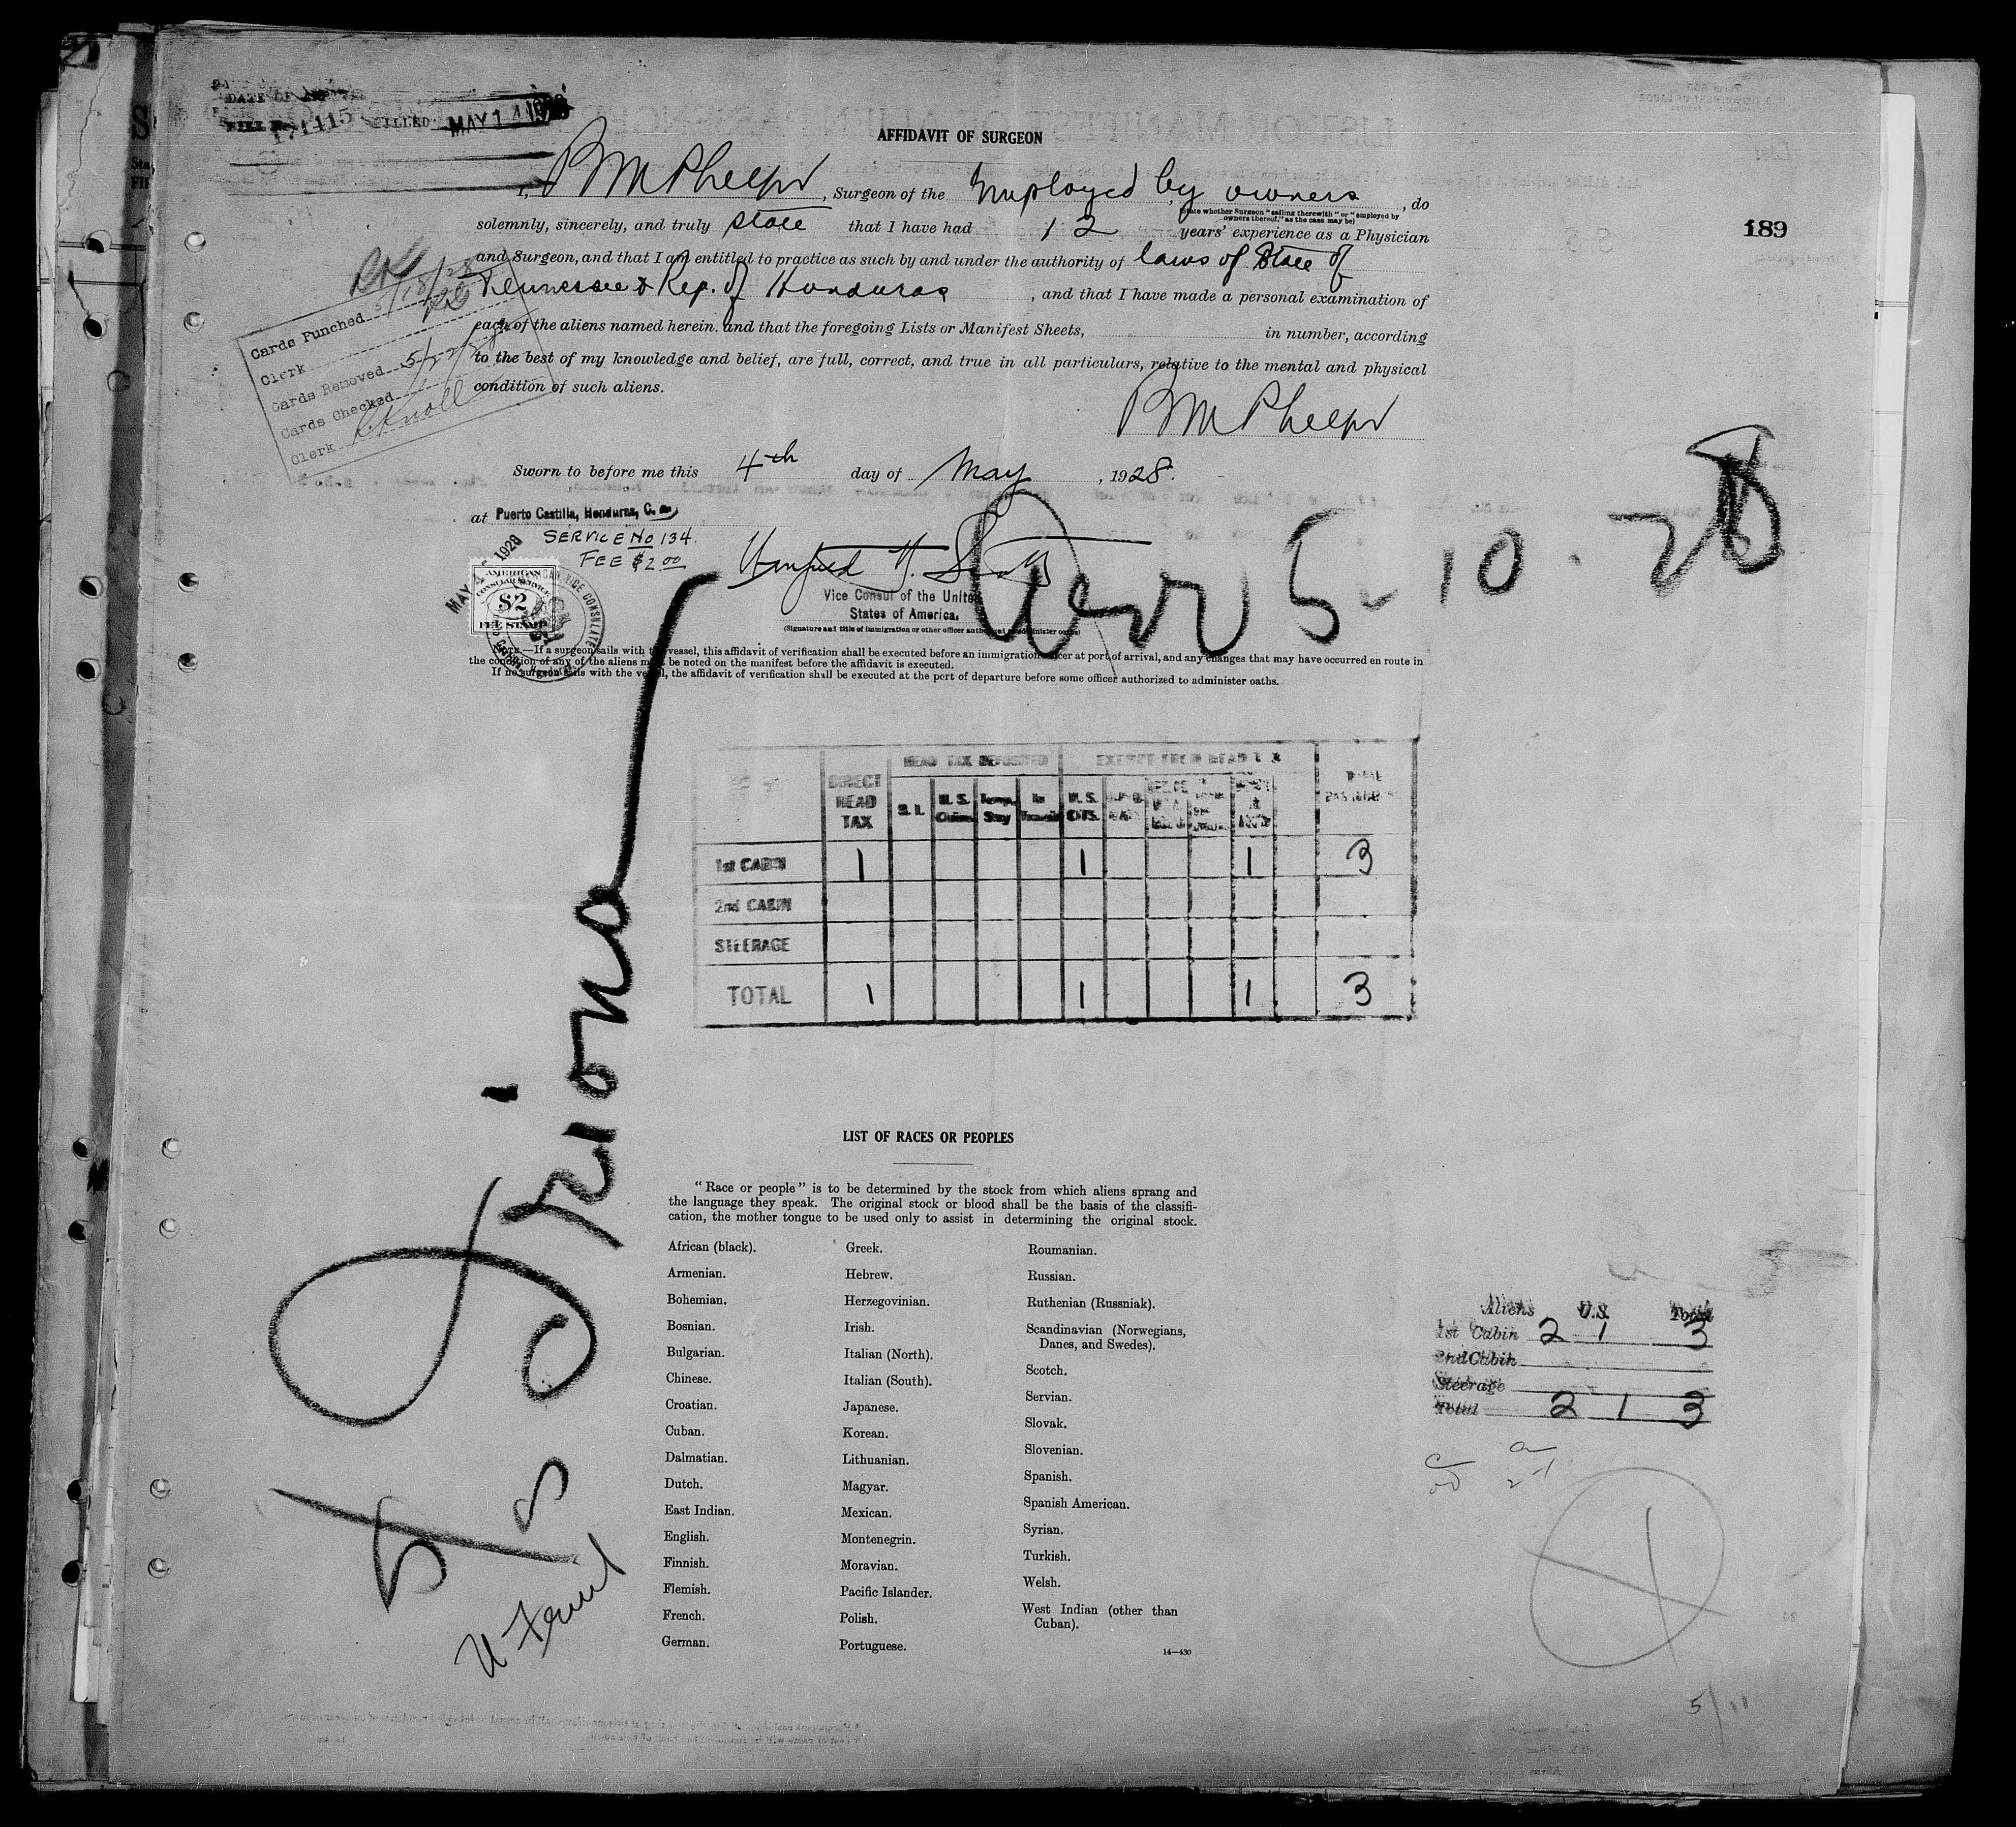 DATE OF
FILE No. 171415 FILLED MAY 14 1928
AFFIDAVIT OF SURGEON
189
I, B M Phelps, Surgeon of the Employed by owners, do
(State whether Surgeon "sailing therewith" or "employed by
owners thereof," as the case may be)
solemnly, sincerely, and truly state that I have had 12 years' experience as a Physician
and Surgeon, and that I am entitled to practice as such by and under the authority of laws of State of
Tennessee & Rep. of Honduras, and that I have made a personal examination of
each of the aliens named herein. and that the foregoing Lists or Manifest Sheets, in number, according
to the best of my knowledge and belief, are full, correct, and true in all particulars, relative to the mental and physical
condition of such aliens.
B M Phelps
Cards Punched 5/18/28
Clerk
Cards Removed 5/22/28
Cards Checked
Clerk Knoll
Sworn to before me this 4th day of May, 1928.
at Puerto Castilla, Honduras, C. A.
SERVICE No 134.
FEE $2.00
MAY 4 1928
AMERICAN
CONSULAR SERVICE
$2
FEE STAMP
Vice Consul of the United
States of America.
(Signature and title of immigration or other officer authorized to administer oaths)
5-10-28
NOTE.—If a surgeon sails with the vessel, this affidavit of verification shall be executed before an immigration officer at port of arrival, and any changes that may have occurred en route in
the condition of any of the aliens must be noted on the manifest before the affidavit is executed.
If no surgeon sails with the vessel, the affidavit of verification shall be executed at the port of departure before some officer authorized to administer oaths.
HEAD TAX DEPOSITED EXEMPT FROM HEAD TAX
DIRECT HEAD TAX S. I. U. S. Claims Temp. Stay In Transit U. S. CITS. TOTAL
1st CABIN 1 1 1 3
2nd CABIN
STEERAGE
TOTAL 1 1 1 3
S/S Iriona
U Fruit
LIST OF RACES OR PEOPLES
"Race or people" is to be determined by the stock from which aliens sprang and
the language they speak. The original stock or blood shall be the basis of the classifi-
cation, the mother tongue to be used only to assist in determining the original stock.
African (black).
Armenian.
Bohemian.
Bosnian.
Bulgarian.
Chinese.
Croatian.
Cuban.
Dalmatian.
Dutch.
East Indian.
English.
Finnish.
Flemish.
French.
German.
Greek.
Hebrew.
Herzegovinian.
Irish.
Italian (North).
Italian (South).
Japanese.
Korean.
Lithuanian.
Magyar.
Mexican.
Montenegrin.
Moravian.
Pacific Islander.
Polish.
Portuguese.
Roumanian.
Russian.
Ruthenian (Russniak).
Scandinavian (Norwegians,
Danes, and Swedes).
Scotch.
Servian.
Slovak.
Slovenian.
Spanish.
Spanish American.
Syrian.
Turkish.
Welsh.
West Indian (other than
Cuban).
14—430
Aliens U.S. Total
1st Cabin 2 1 3
2nd Cabin
Steerage
Total 2 1 3
5/11